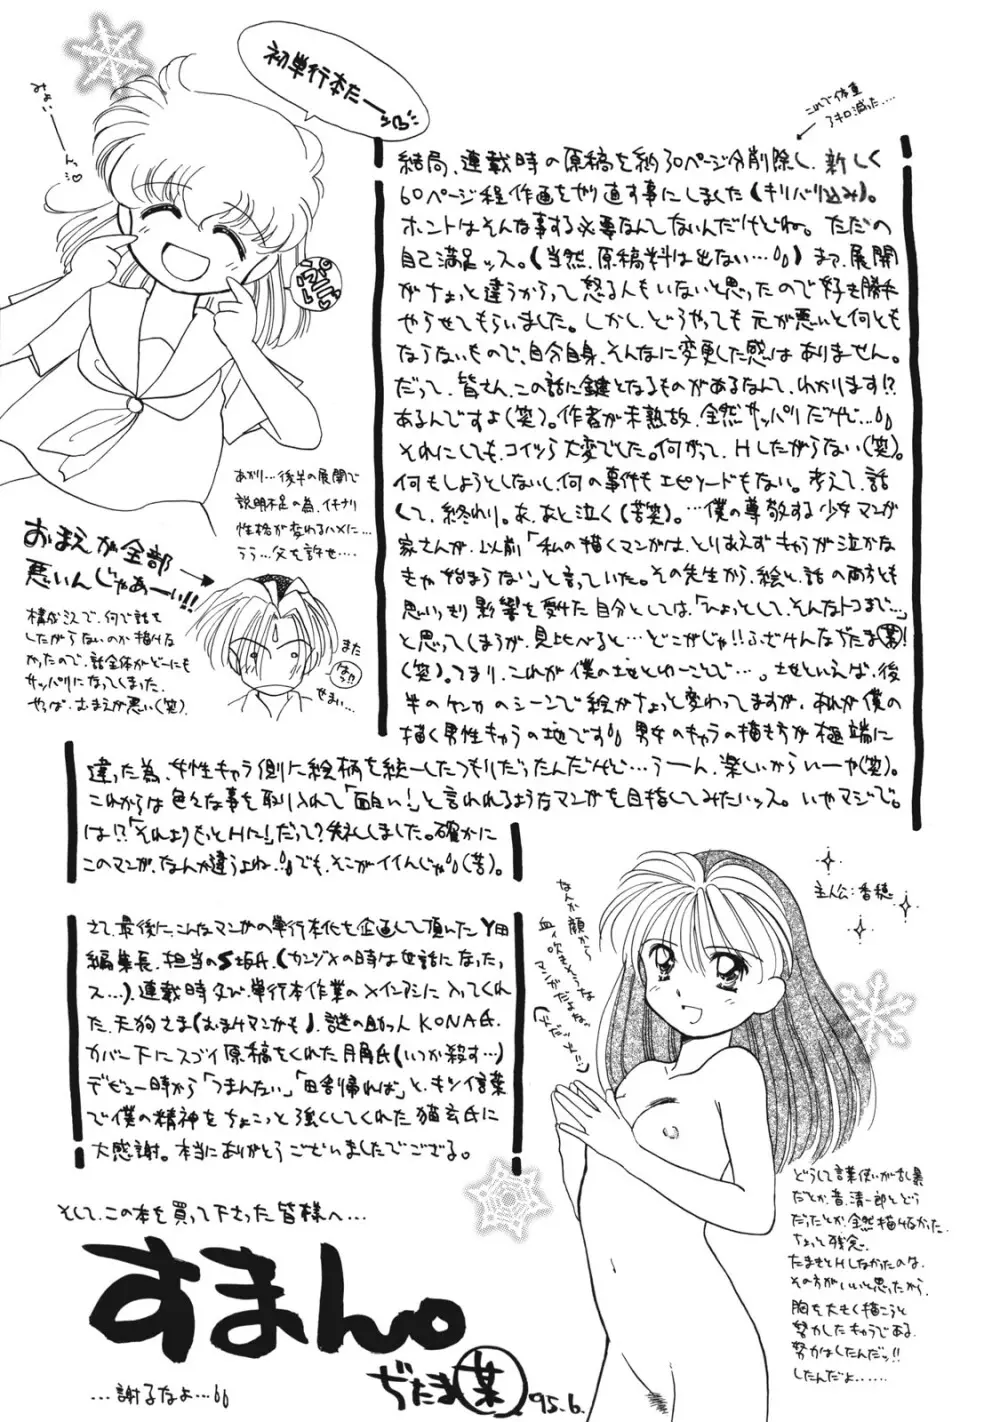 初単行本だー
みょぃーーんっ
ぷに
これで体重
3キロ減った……
結局、連載時の原稿を約30ページ分削除し、新しく
60ページ程作画をやり直す事にしました(キリバリ込み)。
ホントはそんな事する必要なんてしないんだけどね。ただの
自己満足ッス。(当然、原稿料は出ない…)まで、展開
がちょっと違うからって怒る人もいないと思ったので好き勝手
やらせてもらいました。しかし、どうやっても元が悪いと何とも
ならないもので、自分自身、そんなに変更した感はありません。
だって、皆さん、この話に鍵となるものがあるなんて、わかります!?
あるんですよ(笑)。作者が未熟故、全然サッパリだけど…
それにしても、コイツら大変でした。何がって、Hしたがらない(笑)。
何もしようとしないし、何の事件もエピソードもない。考えて、話
くて、終わり。あ、あと泣く(苦笑)。…僕の尊敬する少女マンガ
家さんが、以前「私の描くマンガは、とりあえずキャラが泣かな
きゃ始まらない」と言っていた。その先生から、絵と、話の両方とも
思いっきり影響を受けた自分としては、「ひょっとして、そんなトコまで…」
と思ってしまうが、見比べると…どこがじゃ!!ふざけんなぢたま某!
(笑)。つまり、これが僕の地とゆーことで…。地といえば、後
半のケンカのシーンで絵がちょっと変わってますが、あれが僕の
描く男性キャラの地です 男女のキャラの描き方が極端に
違った為、女性キャラ側に絵柄を統一したつもりだったんだけど…うーん、楽しいからいーや(笑)。
これからは色々な事を取り入れて「面白い!」と言われるようなマンガを目指してみたいッス。いやマジで。
は!?「それよりもっとHに!」だって?失礼しました。確かに
このマンガ、なんか違うよね。でも、そこがイイんじゃ(苦)。
あかり…後半の展開で
説明不足の為、イキナリ
性格が変わるハメに…
うぅ…父を許せ…
おまえが全部
悪いんじゃあーい!!
構成ミスで、何で話を
したがらないのか描ける
なかったので、話全体がどーにも
サッパリになってしまった。
やっぱ、おまえが悪い(笑)。
また
はや
せまい…
さて、最後に、こんなマンガの単行本化を企画して頂いたY田
編集長、担当のS坂氏、(カンヅメの時は世話になったッ
ス…)、連載時及び、単行本作業のメインアシに入ってくれ
た、天狗さま(おまけマンガも)、謎の助っ人KONA氏、
カバー下にスゴイ原稿をくれた月角氏(いつか殺す…)
デビュー時から「つまんない」「田舎帰れば」と、キツイ言葉
で僕の精神をちょこっと強くしてくれた猫玄氏に
大感謝。本当にありがとうございましたでござる。
主人公:香穂
なんか顔から
血ィ吹きそうな
マンガだよなッ
どうして言葉使いが乱暴
だとか、昔、清一郎とどう
だったとか、全然描けなかった。
ちょっと残念。
たまきとHしなかったのは、
その方がいいと思ったから。
胸を大きく描こうと
努力したキャラである。
努力はしたんだッ!!
したんだよ……
そして、この本を買って下さった皆様へ…
すまん。
ぢたま某 '95.6.
…謝るなよ…